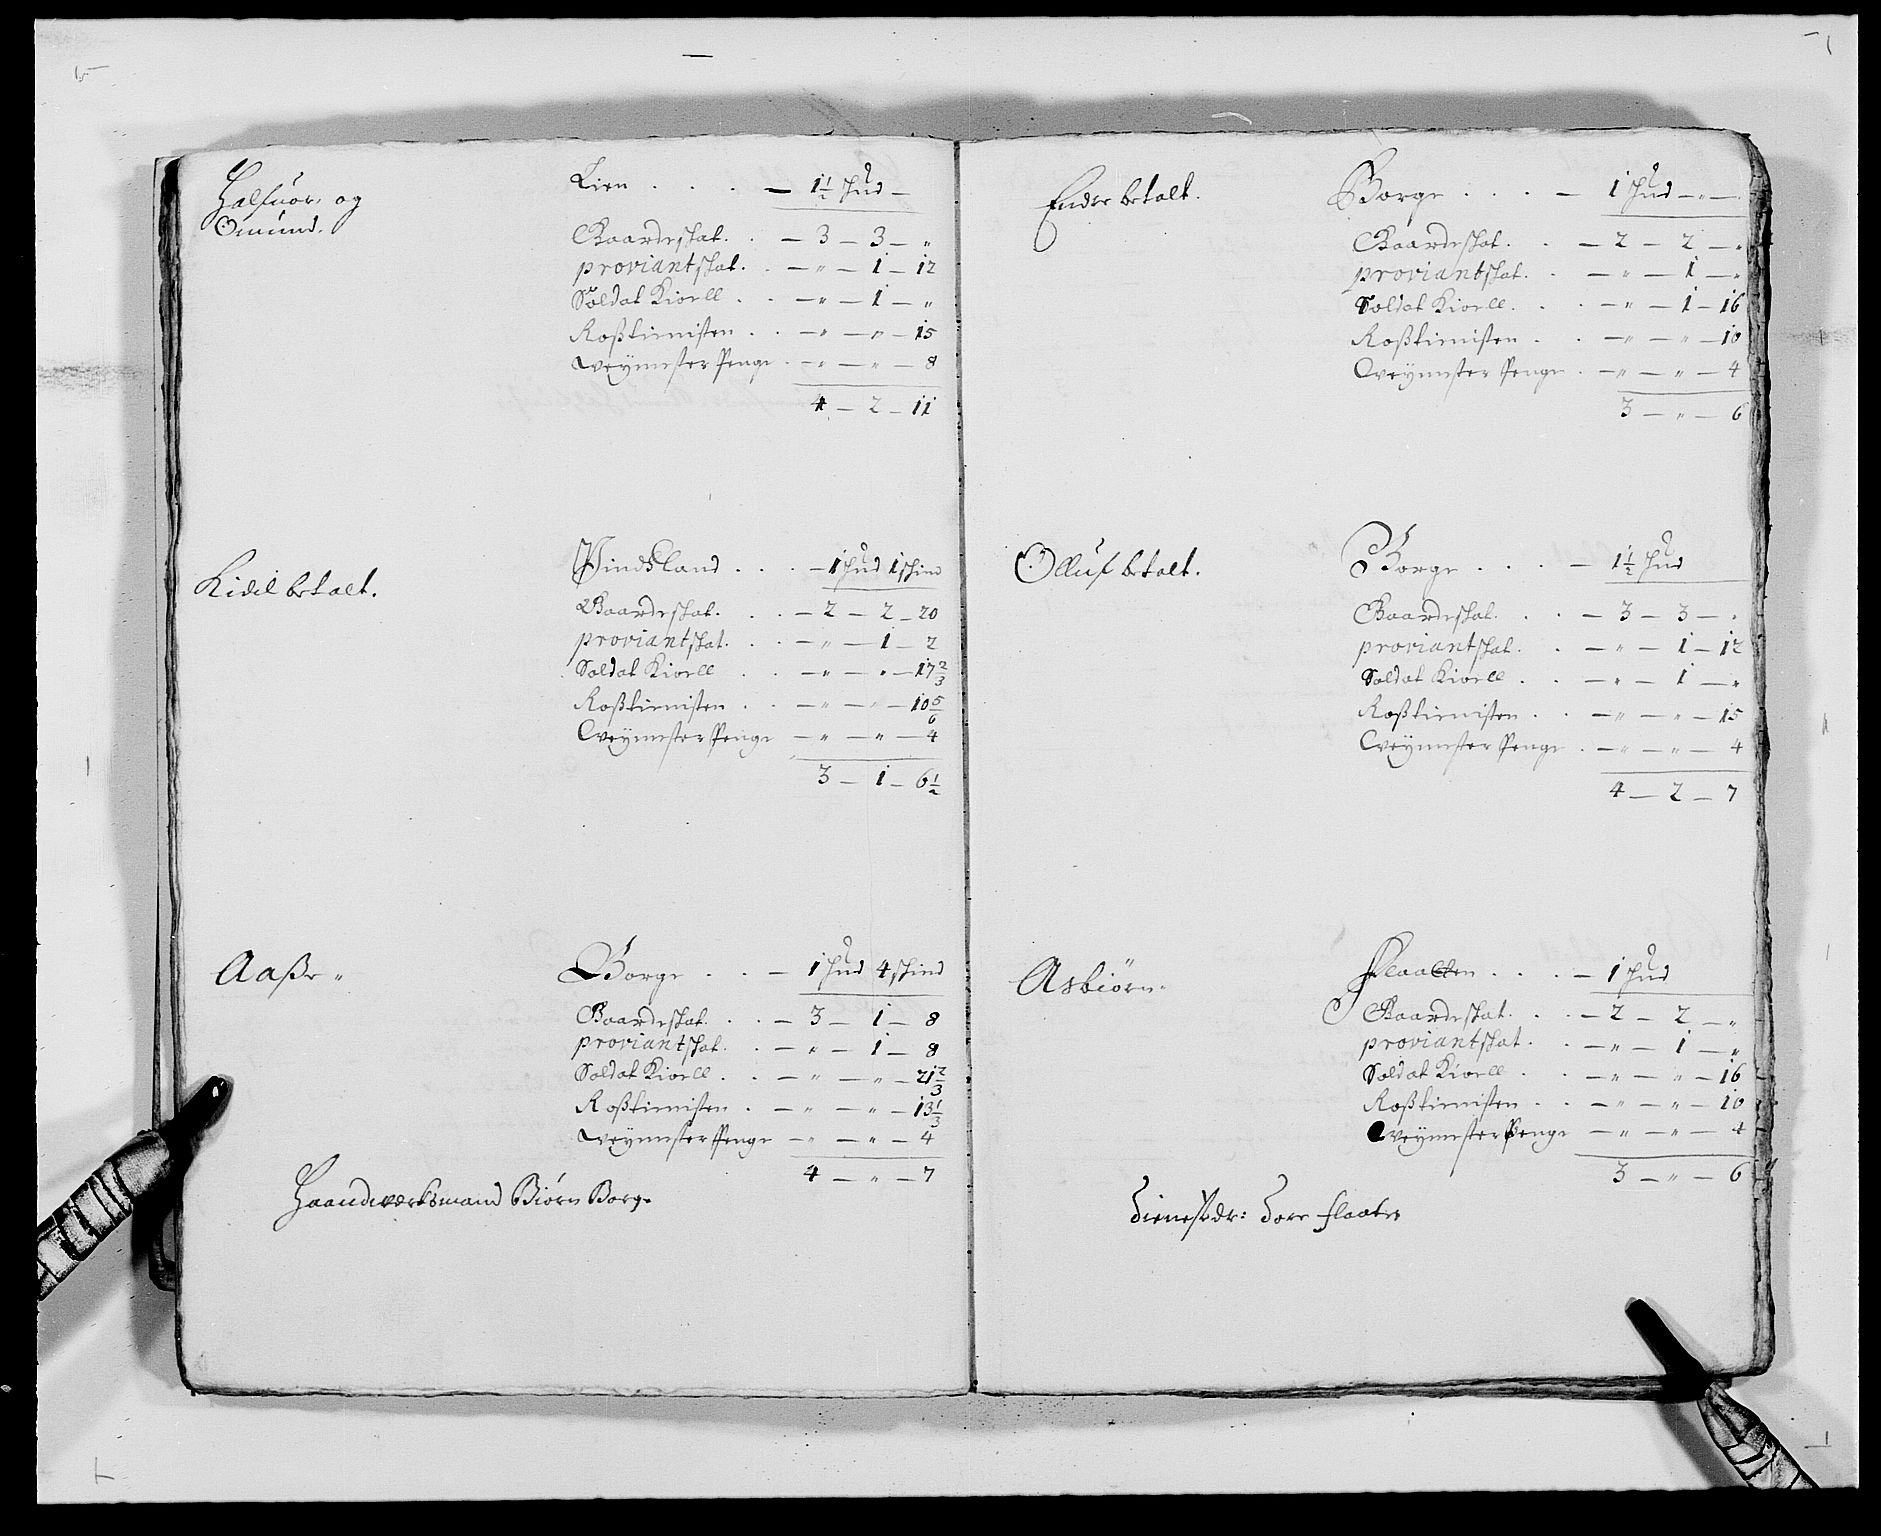 Halfuor, og
Omund.
Lien . . . . — 1½ hud —
Gaardeskat. . — 3 — 3 — „
proviantskat. . — „ — 1 — 12
Soldat Kioell . . — „ — 1 — „
Roßtienisten . . — „ — „ — 15
Breÿmester Penge . — „ — „ — 8
4 — 2 — 11
Kidel betalt.
Vindsland . . . . — 1 hud 1 skind
Gaardeskat. . . — 2 — 2 — 20
proviantskat. . . — „ — 1 — 2
Soldat Kioell . . — „ — „ — 17 2/3
Roßtienisten . . — „ — „ — 10 5/6
Breÿmester Penge — „ — „ — 4
3 — 1 — 6½
Aaße „
Borge . . . — 1 hud 4 skind
Gaardeskat. . . — 3 — 1 — 8
proviantskat. . . — „ — 1 — 8
Soldat Kioell . . . — „ — „ — 21 2/3
Roßtienisten . — „ — „ — 13 1/3
Breÿmester Penge — „ — „ — 4
4 — „ — 7
Haandwerksmand Biørn Borge
Endre betalt.
Borge . . . . — 1 hud — „ —
Gaardeskat. . . — 2 — 2 — „
proviantskat. . . — „ — 1 — „
Soldat Kioell. . . — „ — 1 — 16
Roßtienisten . . — „ — „ — 10
Breÿmester Penge . — „ — „ — 4
3 — „ — 6
Olluf betalt.
Borge . . . . — 1½ hud
Gaardeskat. . . — 3 — 3 — „
proviantskat. . — „ — 1 — 12
Soldat Kioell . . — „ — 1 — „
Roßtienisten . . — „ — „ — 15
Breÿmester Penge . — „ — „ — 4
4 — 2 — 7
Asbiørn „
Flaatten . . . . — 1 hud
Gaardeskat. . . — 2 — 2 — „
proviantskat. . . — „ — 1 — „
Soldat Kioell . . — „ — „ — 16
Roßtienisten . . — „ — „ — 10
Breÿmester Penge — „ — „ — 4
3 — „ — 6
Tienestdr: Tore flaaten